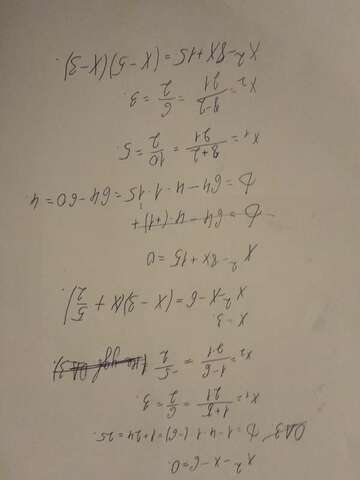 x² - x - 6 = 0
ОДЗ D = 1 - 4 · 1 · (-6) = 1 + 24 = 25
x₁ = 1+5/21 = 6/2 = 3.
x₂ = 1-6/21 = -5/2
x - 3.
x² - x - 6 = (x - 3)(x + 5/2)
x² - 8x + 15 = 0
D = 64 - 4 · (+1)+
D = 64 - 4 · 1 · 15 = 64 - 60 = 4.
x₁ = 8+2/21 = 10/2 = 5.
x₂ = 8-2/21 = 6/2 = 3.
x² - 8x + 15 = (x - 5)(x - 3).